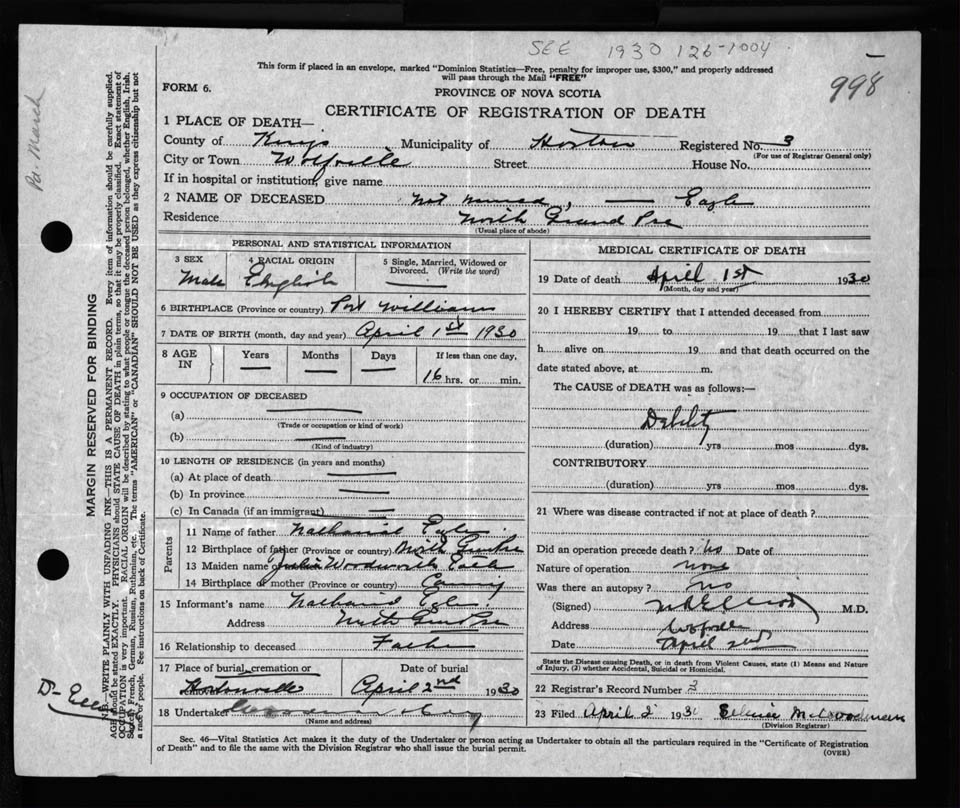 SEE 1930 126-1004
998
This form if placed in an envelope, marked "Dominion Statistics—Free, penalty for improper use, $300," and properly addressed
will pass through the Mail "FREE"
FORM 6.
PROVINCE OF NOVA SCOTIA
CERTIFICATE OF REGISTRATION OF DEATH
1 PLACE OF DEATH—
County of Kings Municipality of Horton Registered No. 3
(For use of Registrar General only)
City or Town Wolfville Street House No.
If in hospital or institution, give name
2 NAME OF DECEASED not named, — Eagle
Residence North Grand Pre
(Usual place of abode)
PERSONAL AND STATISTICAL INFORMATION
3 SEX 4 RACIAL ORIGIN 5 Single, Married, Widowed or
Divorced. (Write the word)
Male English
6 BIRTHPLACE (Province or country) Port Williams
7 DATE OF BIRTH (month, day and year) April 1st 1930
8 AGE IN Years Months Days If less than one day,
16 hrs. or min.
9 OCCUPATION OF DECEASED
(a)
(Trade or occupation or kind of work)
(b)
(Kind of industry)
10 LENGTH OF RESIDENCE (in years and months)
(a) At place of death
(b) In province
(c) In Canada (if an immigrant)
Parents
11 Name of father Nathaniel Eagle
12 Birthplace of father (Province or country) North Grand Pre
13 Maiden name of Woodworth Eagle
14 Birthplace of mother (Province or country) Canning
15 Informant's name Nathaniel Eagle
Address North Grand Pre
16 Relationship to deceased Father
17 Place of burial, cremation or Date of burial
Hortonville April 2nd 1930
18 Undertaker
(Name and address)
MEDICAL CERTIFICATE OF DEATH
19 Date of death April 1st 1930
(Month, day and year)
20 I HEREBY CERTIFY that I attended deceased from
19 to 19 that I last saw
h alive on 19 and that death occurred on the
date stated above, at m.
The CAUSE of DEATH was as follows:—
Debility
(duration) yrs mos dys.
CONTRIBUTORY
(duration) yrs mos dys.
21 Where was disease contracted if not at place of death?
Did an operation precede death? No Date of
Nature of operation none
Was there an autopsy? no
(Signed) M.D.
Address Wolfville
Date April 2nd
State the Disease causing Death, or in death from Violent Causes, state (1) Means and Nature
of Injury, (2) whether Accidental, Suicidal or Homicidal.
22 Registrar's Record Number 3
23 Filed April 2 193
(Division Registrar)
Sec. 46—Vital Statistics Act makes it the duty of the Undertaker or person acting as Undertaker to obtain all the particulars required in the "Certificate of Registration
of Death" and to file the same with the Division Registrar who shall issue the burial permit.
(OVER)
MARGIN RESERVED FOR BINDING
N.B.—WRITE PLAINLY WITH UNFADING INK—THIS IS A PERMANENT RECORD. Every item of information should be carefully supplied.
AGE should be stated EXACTLY. PHYSICIANS should STATE CAUSE OF DEATH in plain terms, so that it may be properly classified. Exact statement of
OCCUPATION is very important. RACIAL ORIGIN will be described by stating to what people or tongue the deceased person belonged, whether English, Irish,
Scotch, French, German, Russian, Ruthenian, etc. The terms "AMERICAN" or "CANADIAN" SHOULD NOT BE USED as they express citizenship but not
a race or people. See instructions on back of Certificate.